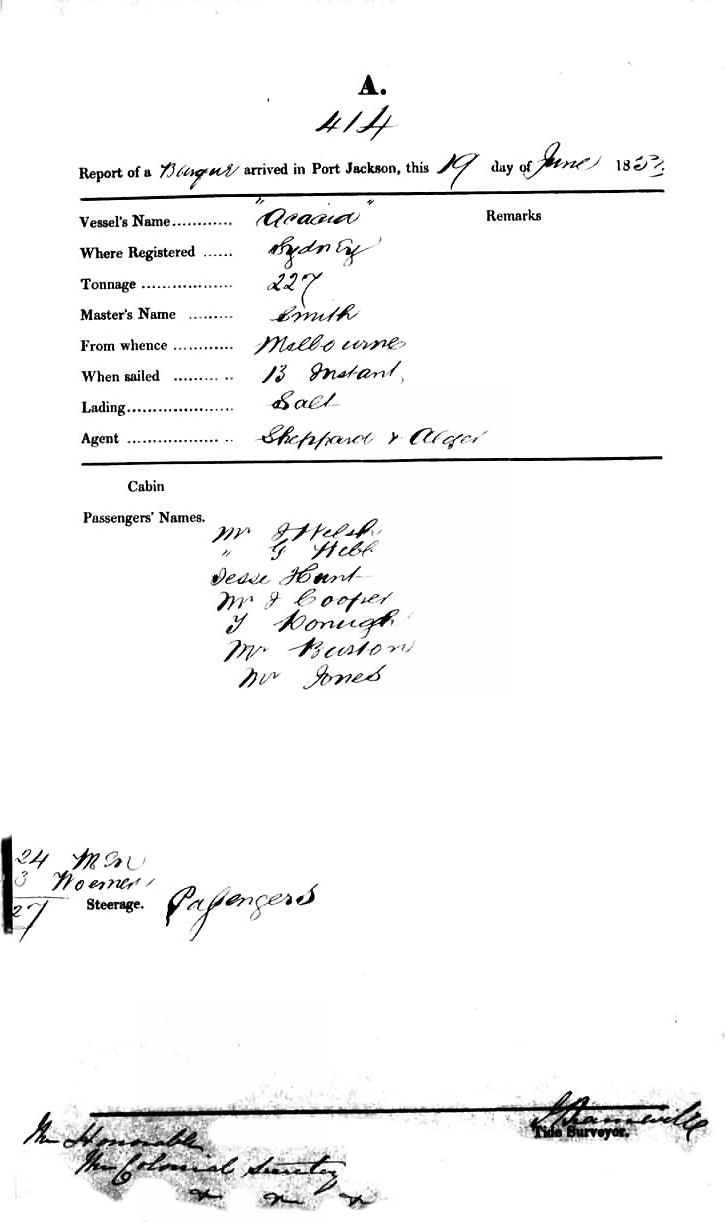 A.
414
Report of a Barque arrived in Port Jackson, this 19 day of June 185
Vessel's Name............ "Acacia" Remarks
Where Registered ...... Sydney
Tonnage .................. 227
Master's Name ......... Smith
From whence ............ Melbourne
When sailed ......... .. 13 Instant,
Lading..................... Salt
Agent .................. .. Sheppard & Alger
Cabin
Passengers' Names.
Mr J Welsh
" G Webb
Jesse Hunt
Mr J Cooper
T
Mr Burton
Mr Jones
24 Men
3 Woemen
27 Steerage. Passengers
Tide Surveyor.
The Honorable
The Colonial Secretey